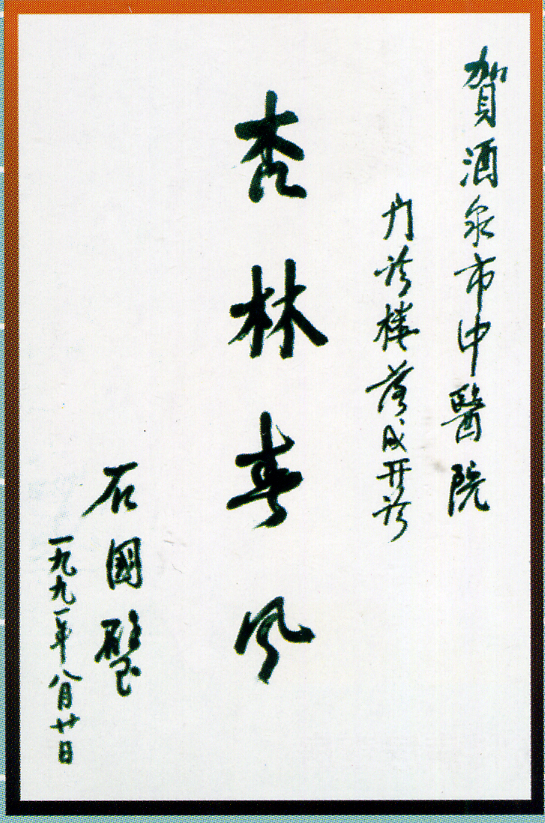 賀酒泉市中醫院
门诊楼落成开诊
杏林春风
石國璧
一九九一年八月廿日